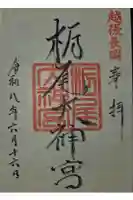 越後長岡
奉拝
栃尾大神宮
令和八年六月十六日